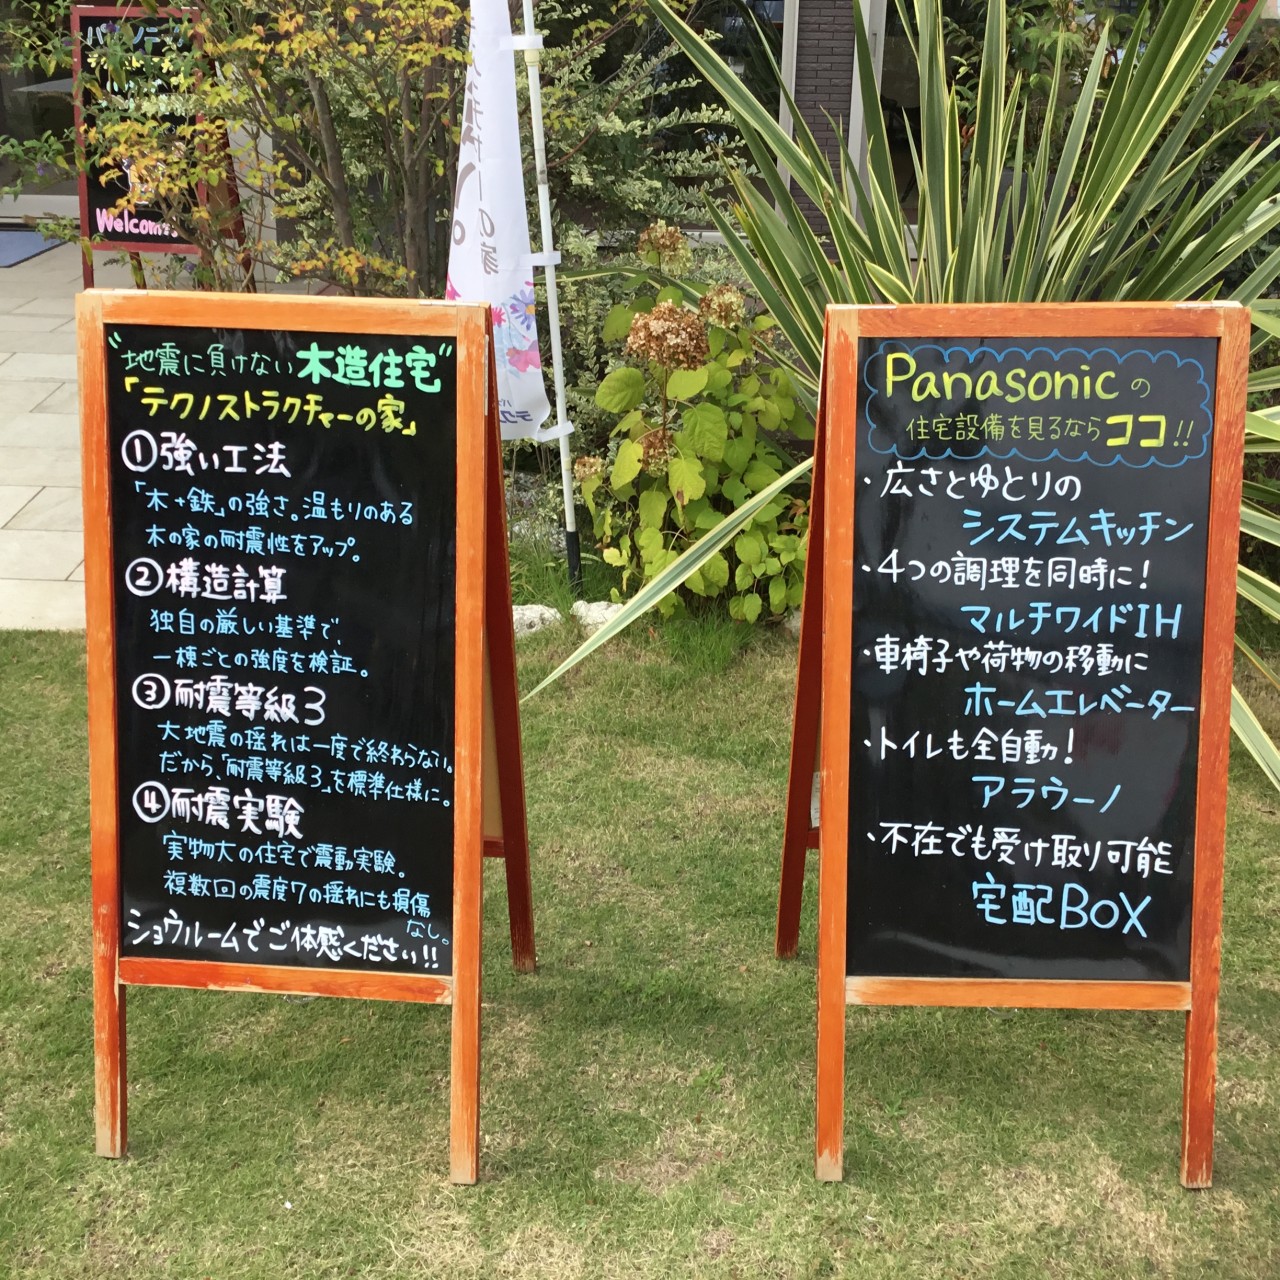 パナソニック
Welcome
の家
"地震に負けない木造住宅"
「テクノストラクチャーの家」
①強い工法
「木+鉄」の強さ。温もりのある
木の家の耐震性をアップ。
②構造計算
独自の厳しい基準で、
一棟ごとの強度を検証。
③耐震等級3
大地震の揺れは一度で終わらない。
だから、「耐震等級3」を標準仕様に。
④耐震実験
実物大の住宅で震動実験。
複数回の震度7の揺れにも損傷
なし。
ショウルームでご体感ください!!
Panasonicの
住宅設備を見るならココ!!
・広さとゆとりの
システムキッチン
・4つの調理を同時に!
マルチワイドIH
・車椅子や荷物の移動に
ホームエレベーター
・トイレも全自動!
アラウーノ
・不在でも受け取り可能
宅配BOX